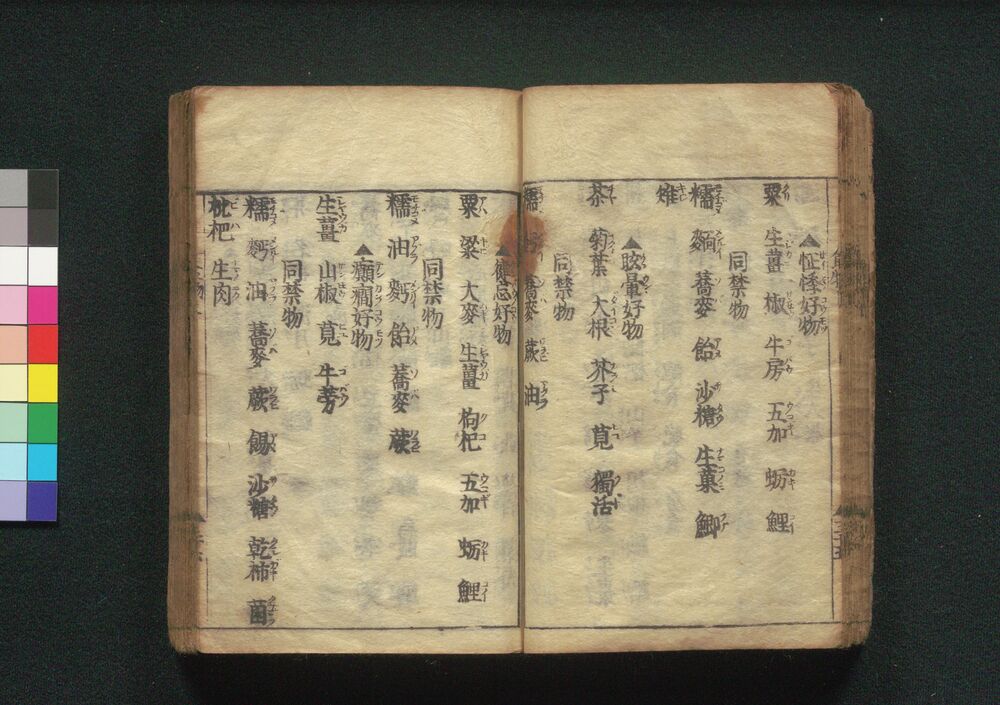 ▲怔忡好物
粟 生薑 椒 牛房 五加 蛎 鯉
同禁物
糯 麺 蕎麥 飴 沙糖 生菓 鯽
雉
▲眩暈好物
茶 菊葉 大根 芥子 莧 獨活
同禁物
糯 蕎麥 蕨 油
▲健忘好物
粟 粱 大麥 生薑 枸杞 五加 蛎 鯉
同禁物
糯 油 麪 飴 蕎麥 蕨
▲癲癇好物
生薑 山椒 莧 牛蒡
同禁物
糯 麪 油 蕎麥 蕨 餳 沙糖 乾柿 菌
枇杷 生肉